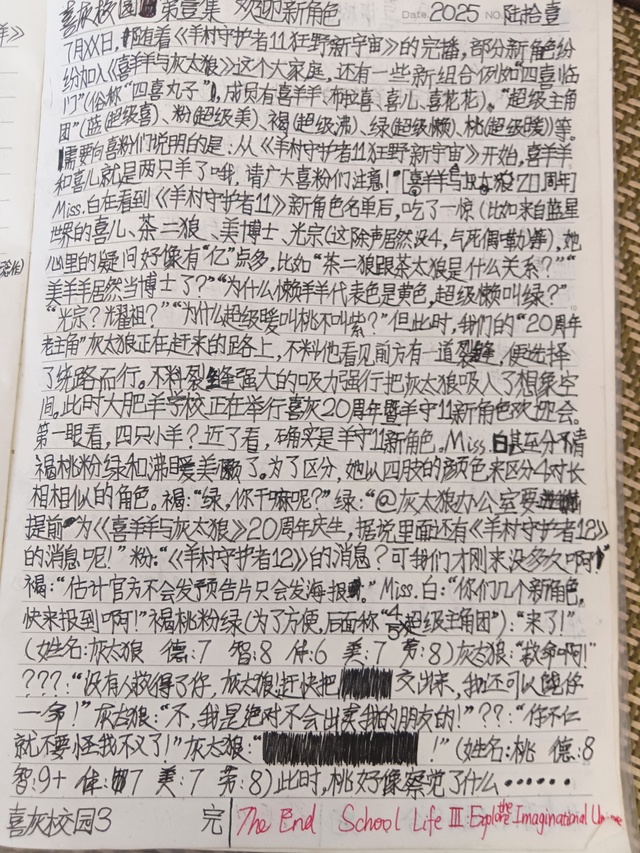 喜灰校园 第壹集 欢迎新角色 Date 2025 NO. 陆拾壹
7月XX日,随着《羊村守护者11狂野新宇宙》的完播,部分新角色纷
纷加入《喜羊羊与灰太狼》这个大家庭,还有一些新组合例如“四喜临
门”(俗称“四喜丸子”),成员有喜羊羊、布拉喜、喜儿、喜花花)。“超级主角
团”(蓝(超级喜)、粉(超级美)、褐(超级沸)、绿(超级懒)、桃(超级暖))等。
需要向喜粉们说明的是:从《羊村守护者11狂野新宇宙》开始,喜羊羊
和喜儿就是两只羊了哦,请广大喜粉们注意!”[喜羊羊与灰太狼20周年]
Miss.白在看到《羊村守护者11》新角色名单后,吃了一惊(比如来自蓝星
世界的喜儿、茶二狼、美博士、光宗(这除声居然没4,气死偶嘞)等),她
心里的疑问好像有“亿”点多,比如“茶二狼跟茶太狼是什么关系?”“
美羊羊居然当博士了?”“为什么懒羊羊代表色是黄色,超级懒叫绿?”
“光宗?耀祖?”“为什么超级暖叫桃不叫紫?”但此时,我们的“20周年
老主角”灰太狼正在赶来的路上,不料他看见前方有一道裂缝,便选择
了绕路而行。不料裂缝强大的吸力强行把灰太狼吸入了想象空
间。此时大肥羊学校正在举行喜灰20周年暨羊守11新角色欢迎会。
第一眼看,四只小羊?近了看,确实是羊守11新角色。Miss.白甚至分不清
褐桃粉绿和沸暖美懒了。为了区分,她以四肢的颜色来区分4对长
相相似的角色。褐:“绿,你干嘛呢?”绿:“@灰太狼办公室要
提前为《喜羊羊与灰太狼》20周年庆生,据说里面还有《羊村守护者12》
的消息呢!”粉:“《羊村守护者12》的消息?可我们才刚来没多久啊!”
褐:“估计官方不会发预告片只会发海报。”Miss.白:“你们几个新角色,
快来报到啊!”褐桃粉绿(为了方便,后面称“4/5超级主角团”):“来了!”
(姓名:灰太狼 德:7 智:8 体:6 美:7 劳:8)灰太狼:“救命啊!”
???:“没有人救得了你,灰太狼!赶快把 交出来,我还可以饶你
一命!”灰太狼:“不,我是绝对不会出卖我的朋友的!”??:“你不仁
就不要怪我不义了!”灰太狼:“ !”(姓名:桃 德:8
智:9+ 体:7 美:7 劳:8)此时,桃好像察觉了什么······
喜灰校园3 完 The End School Life III: Explore the Imaginational